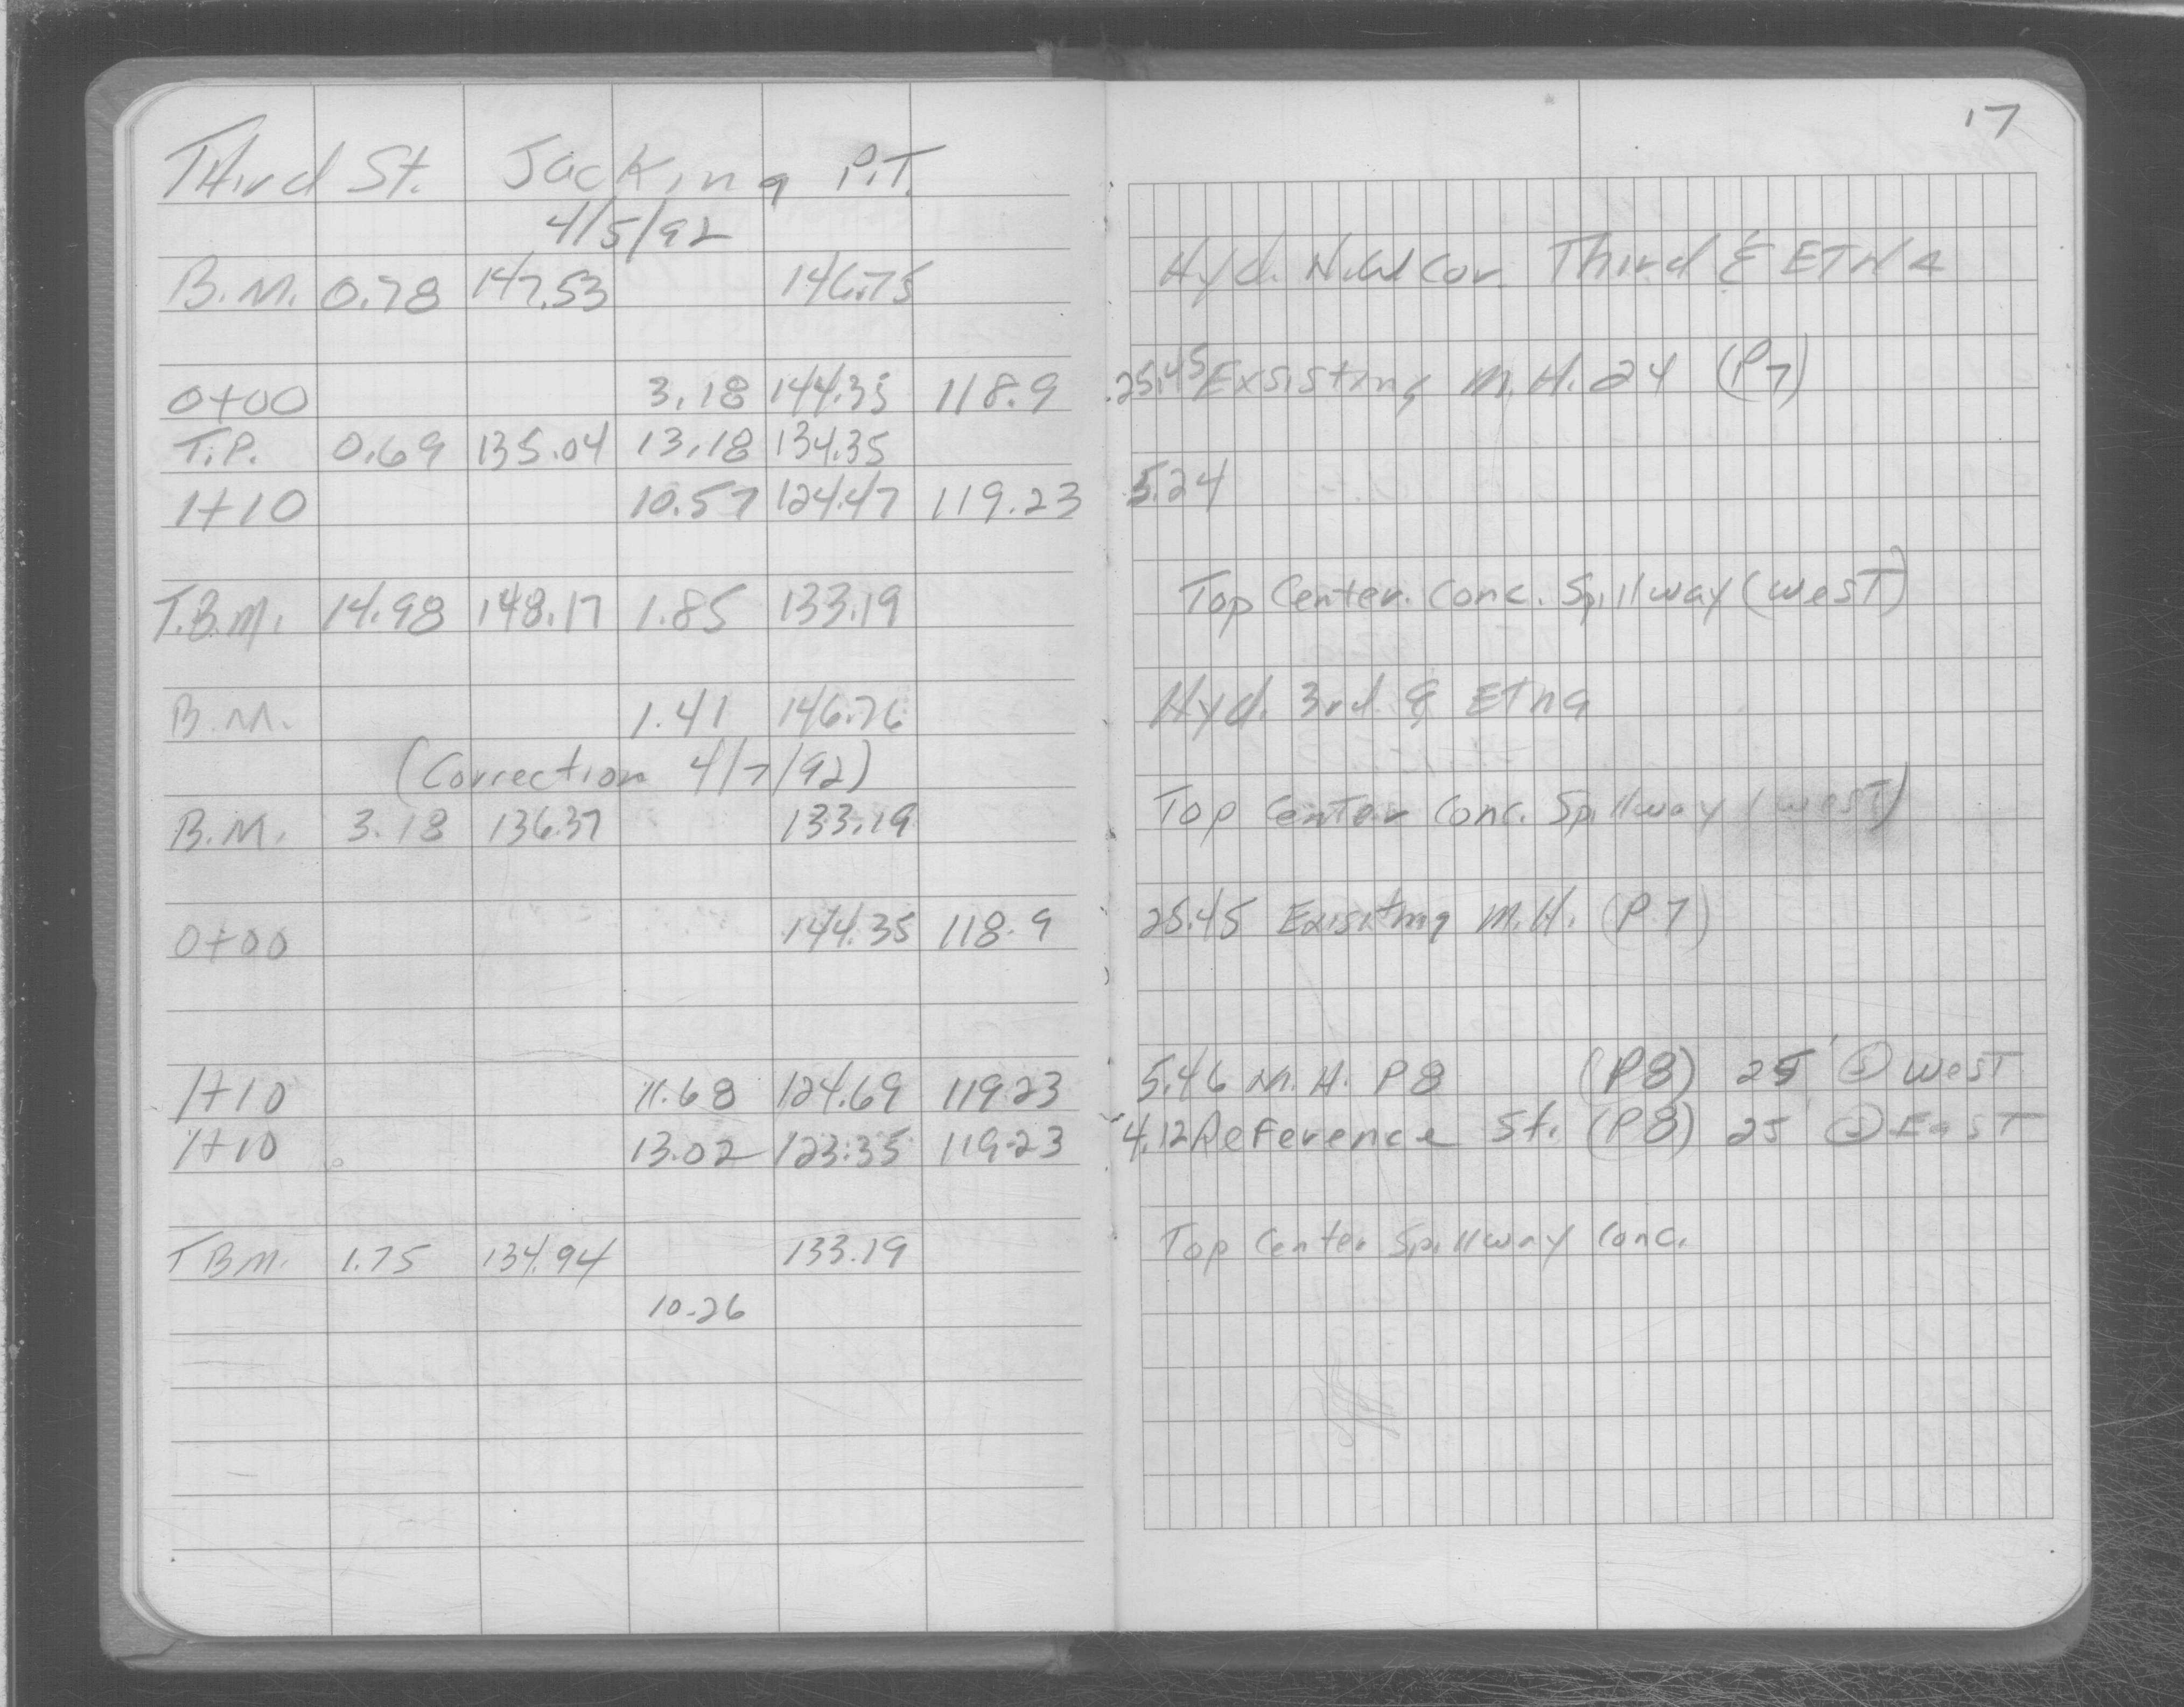 17
Third St. Jacking P.T.
4/5/92
B.M. 0.78 147.53 146.75 Hyd. N.W. Cor. Third & ETNA
0+00 3.18 144.35 118.9 25.45 Exsisting M.H. 24 (P7)
T.P. 0.69 135.04 13.18 134.35
1+10 10.57 124.47 119.23 5.24
T.B.M. 14.98 148.17 1.85 133.19 Top Center. Conc. Spillway (west)
B.M. 1.41 146.76 Hyd. 3rd & Etna
(Correction 4/7/92)
B.M. 3.18 136.37 133.19 Top Center Conc. Spillway (west)
0+00 144.35 118.9 25.45 Exisitng M.H. (P.7)
1+10 11.68 124.69 119.23 5.46 M.H. P8 (P8) 25' west
1+10 13.02 123.35 119.23 4.12 Reference St. (P8) 25' East
TBM. 1.75 134.94 133.19 Top Center Spillway Conc.
10.26